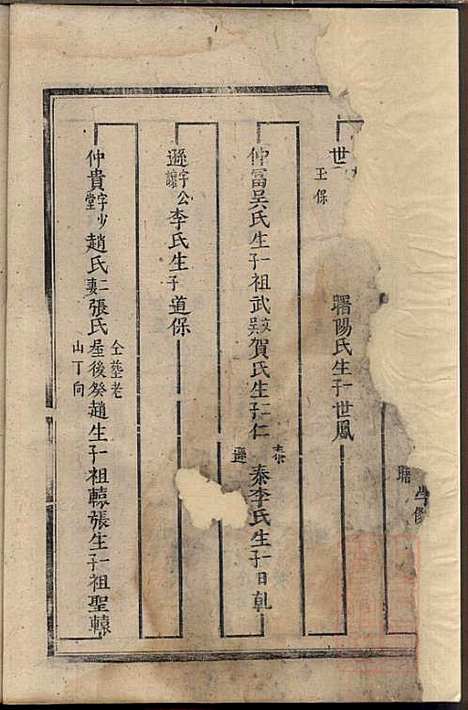 學
曙
世
玉保
曙陽氏生子一世鳳
仲富吳氏生子一祖武
賀氏生子二仁
泰
遜
泰李氏生子一日乹
遜字公讓李氏生子道保
仲貴字少堂趙氏二妻張氏仝墓老屋後癸山丁向趙生子一祖轅張生子一祖聖轅